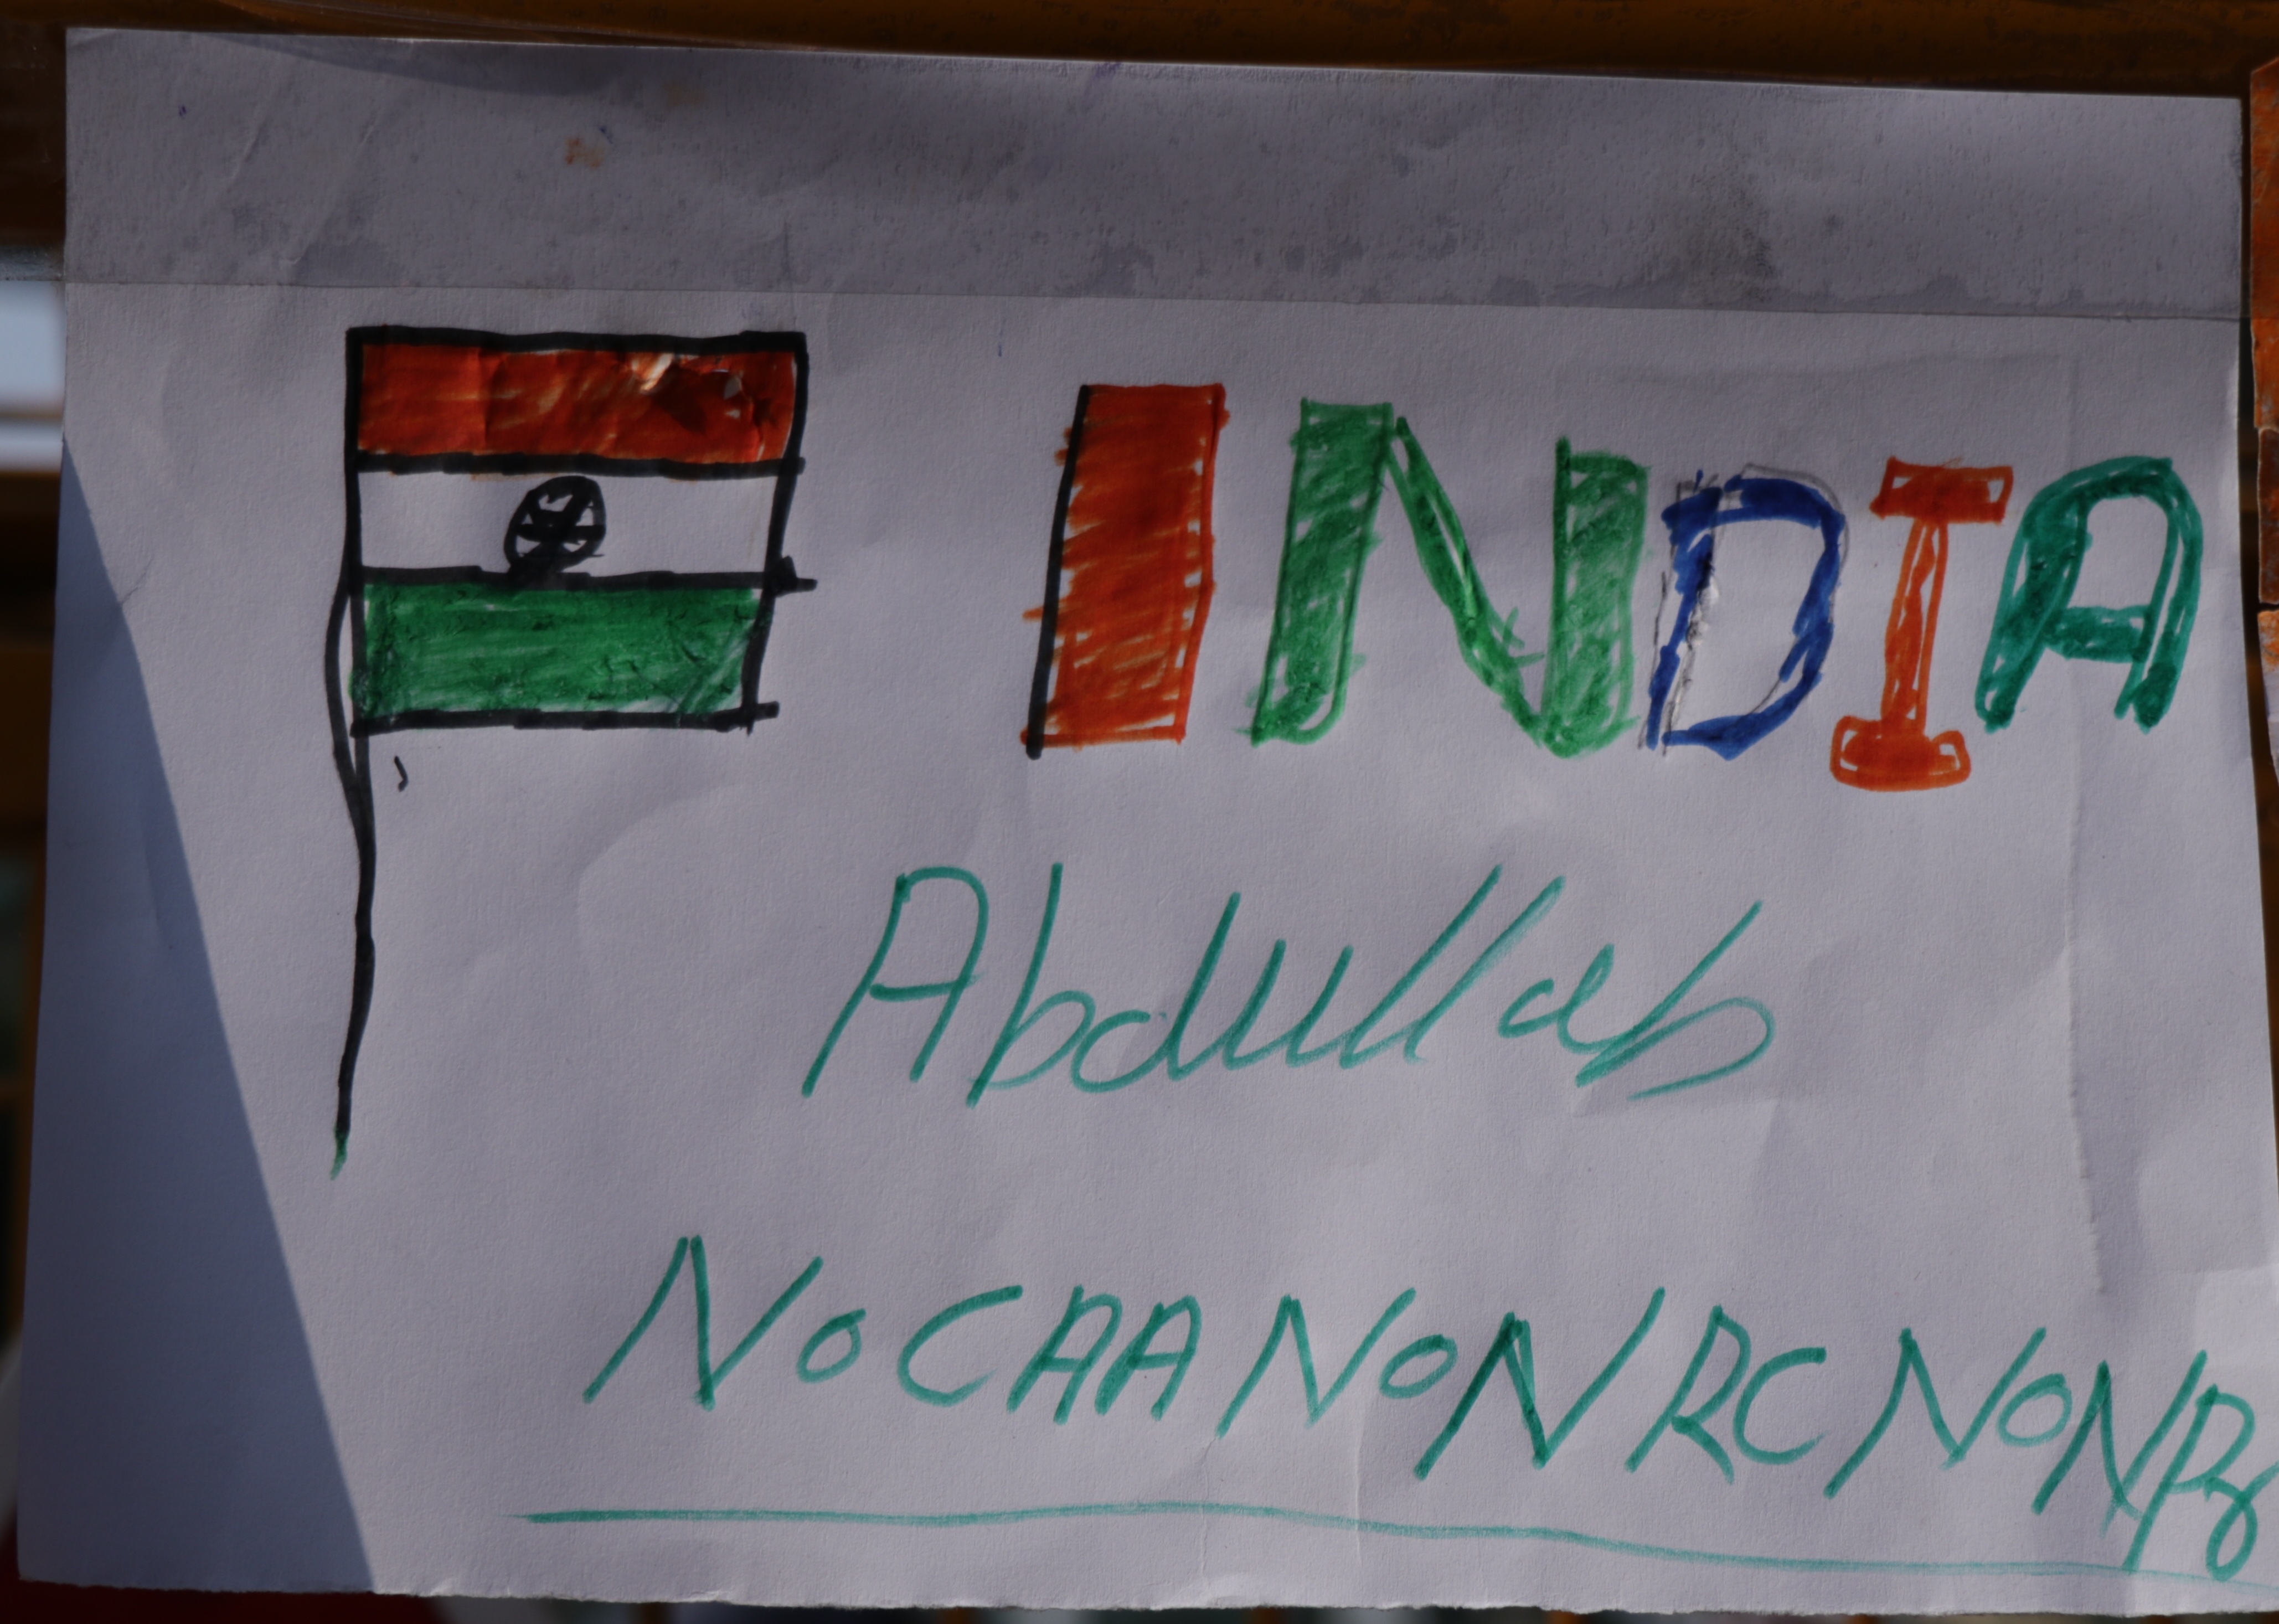 INDIA
Abdullah
No CAA No NRC No NPR